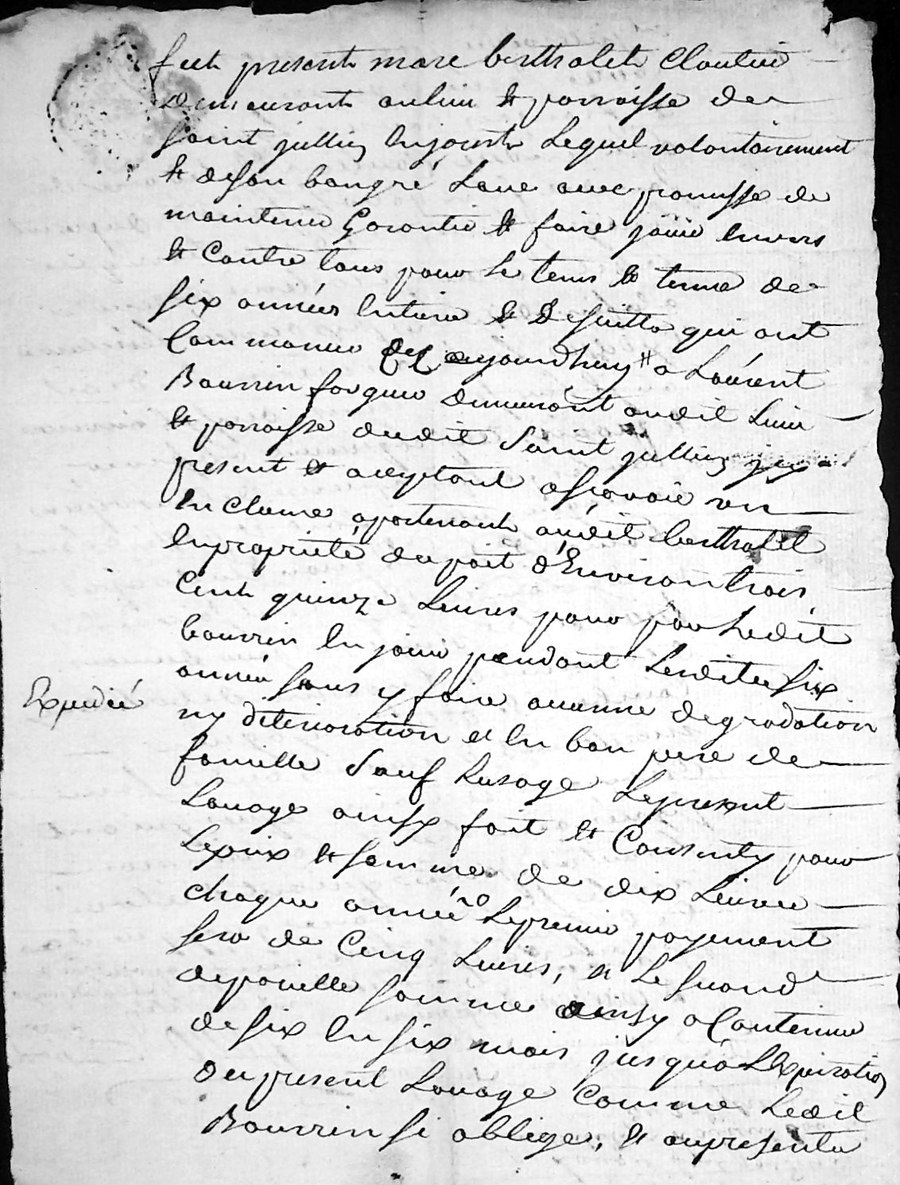 fut present marc berthalet Cloutier
demeurant au lieu & parroisse de
saint jullien Lequel volontairement
& de son bon gré Loue avec promesse de
maintenir Garantir & faire joüir envers
& Contre tous pour le tems & terme de
six années Entiere & de suitte qui ont
Commancé aujourdhuy a Laurent
Bourrin demeurant audit Lieu
& parroisse dudit Saint jullien jcy
present & aceptant asçavoir un
Enclume apartenant audit berthalet
En proprieté du poit d'Environ trois
Cent quinze Livres pour par Ledit
bourrin En jouir pendant Lesdites six
année sans y faire aucunne degradation
ny déterioration et En bon pere de
famille Sauf Lusage Le present
Louage ainsy fait & Consenty pour
Le prix & somme de dix Livres
chaque année Le premier payement
sera de Cinq Livres, & Le second
de pareille somme ainsy a Continuer
de six En six mois jusqu'a L'Expiration
du present Louage Comme Ledit
Bourrin si oblige, & au presente
Expedié